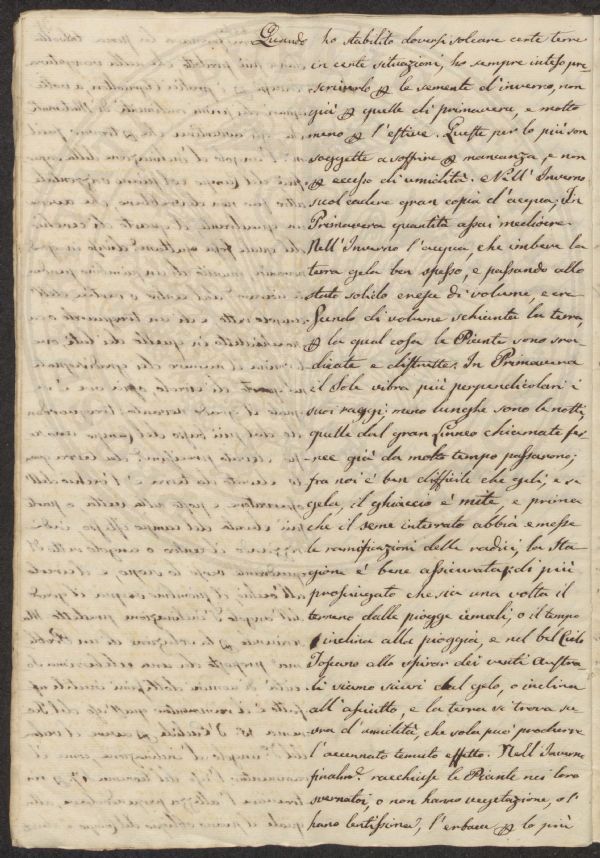 Quando ho stabilito doversi solcare certe terre
in certe situazioni, ho sempre inteso pre-
scriverlo p le semente d'inverno, non
già p quelle di primavera, e molto
meno p l'estive. Queste per lo più son
soggette a soffrire p mancanza, e non
p eccesso di umidità. Nell'Inverno
suol cadere gran copia d'acqua; In
Primavera quantità assai mediocre.
Nell'Inverno l'acqua, che imbeve la
terra gela ben spesso, e passando allo
stato solido cresce di volume, e cre-
scendo di volume schianta la terra,
p la qual cosa le Piante sono sra-
dicate e distrutte. In Primavera
il Sole vibra più perpendicolari i
suoi raggi; meno lunghe sono le notti,
quelle dal gran Linneo chiamate fer-
ree già da molto tempo passarono;
fra noi è ben difficile che geli, e se
gela, il ghiaccio è mite, e prima
che il seme interrato abbia emesse
le ramificazioni delle radici, la Sta-
gione è bene assicurata; di più
prosciugato che sia una volta il
terreno dalle piogge iemali, o il tempo
inclina alla pioggia, e nel bel Cielo
Toscano allo spirar dei venti Austra-
li siamo sicuri dal gelo, o inclina
all'asciutto, e la terra si trova sce-
vra d'umidità, che sola può produrre
l'accennato temuto effetto. Nell'Inverno
finalm. racchiuse le Piante nei loro
svernatoi, o non hanno vegetazione, o l'
hano lentissima, l'erbacce p lo più